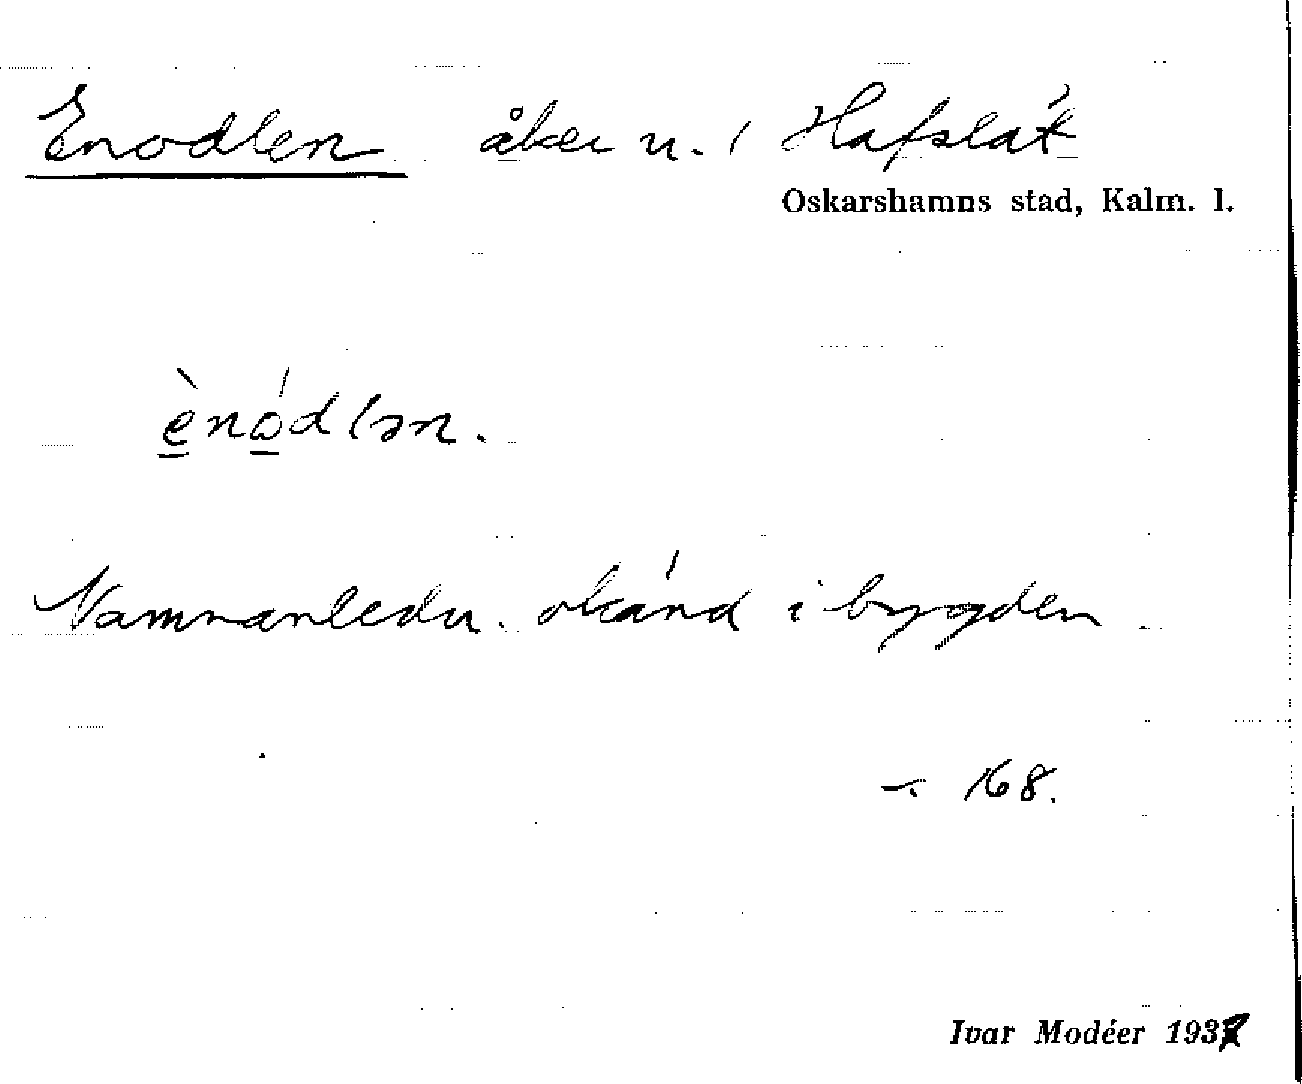 Enodlen åker n. i Hafslätt
Oskarshamns stad, Kalm. l.
ènódlən.
Namnanledn. okänd i bygden
168.
Ivar Modéer 1937